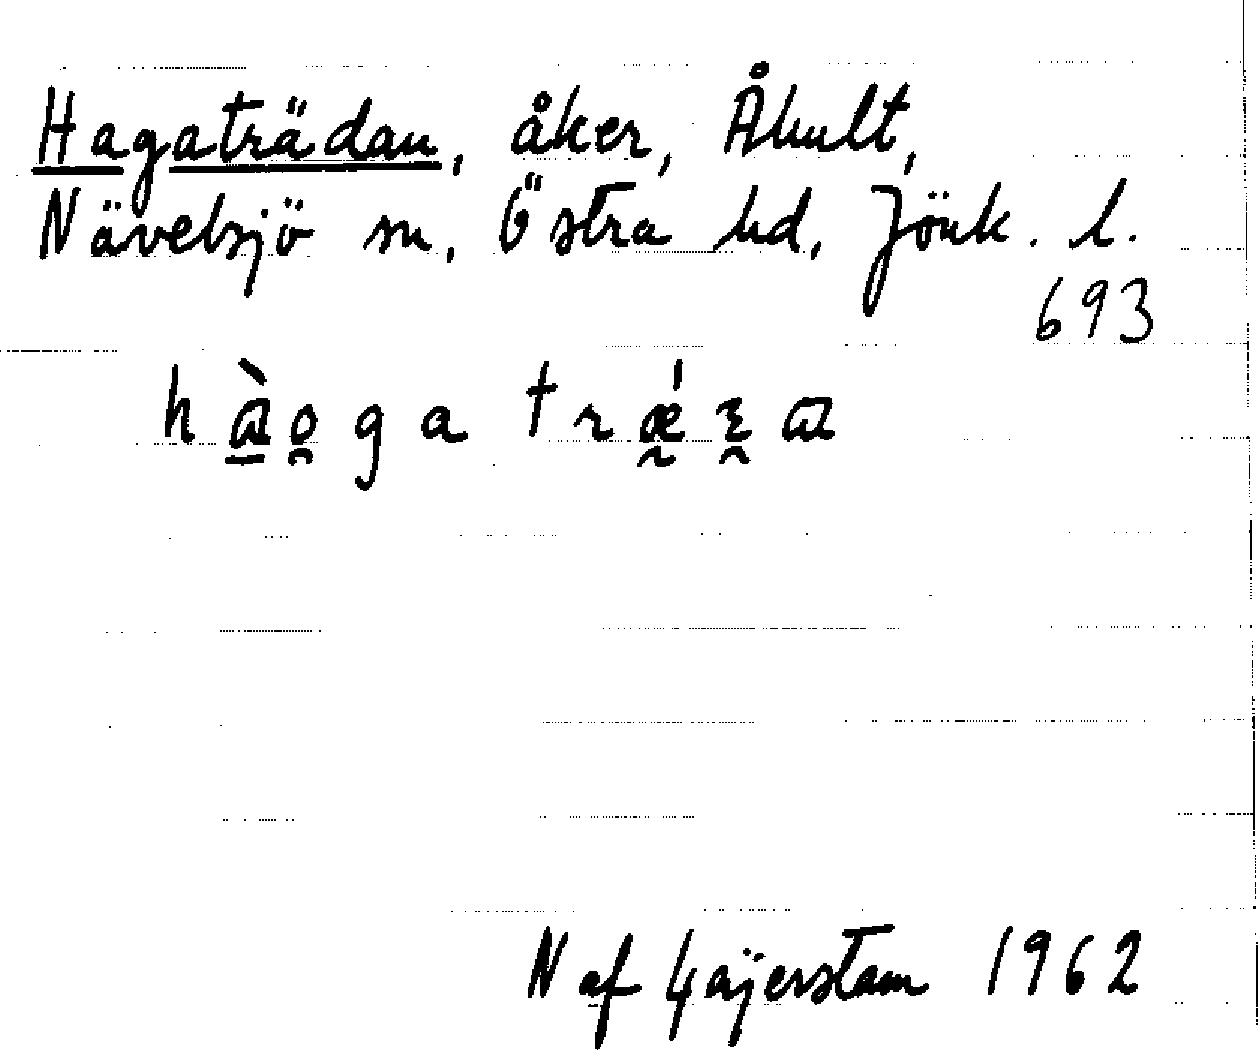 Hagaträdan, åker, Åhult,
Nävelsjö sn, Östra hd, Jönk. l.
693
N af Geijerstam 1962